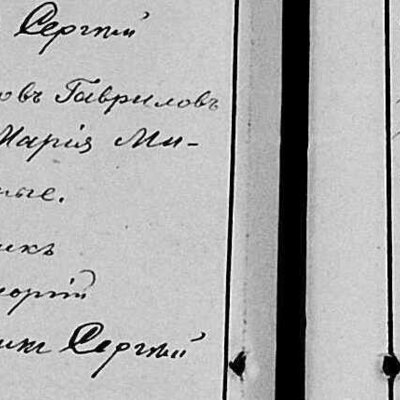 Сергій
овъ Гавриловъ
Марія Ми-
ные.
икъ
оргій
икъ Сергій